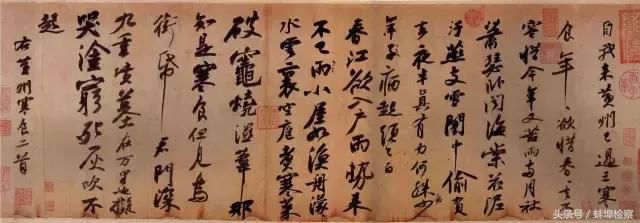 自我来黄州已過三寒
食年〻欲惜春〻去不
容惜今年又苦雨兩月秋
蕭瑟卧聞海棠花泥
汙燕支雪闇中偷負
去夜半真有力何殊少
年子病起頭已白
春江欲入户雨勢来
不已雨小屋如漁舟濛〻
水雲裏空庖煮寒菜
破竈燒溼葦那
知是寒食但見烏
銜帋君門深
九重墳墓在万里也擬
哭塗窮死灰吹不
起
右黄州寒食二首
头条号/蚌埠检察